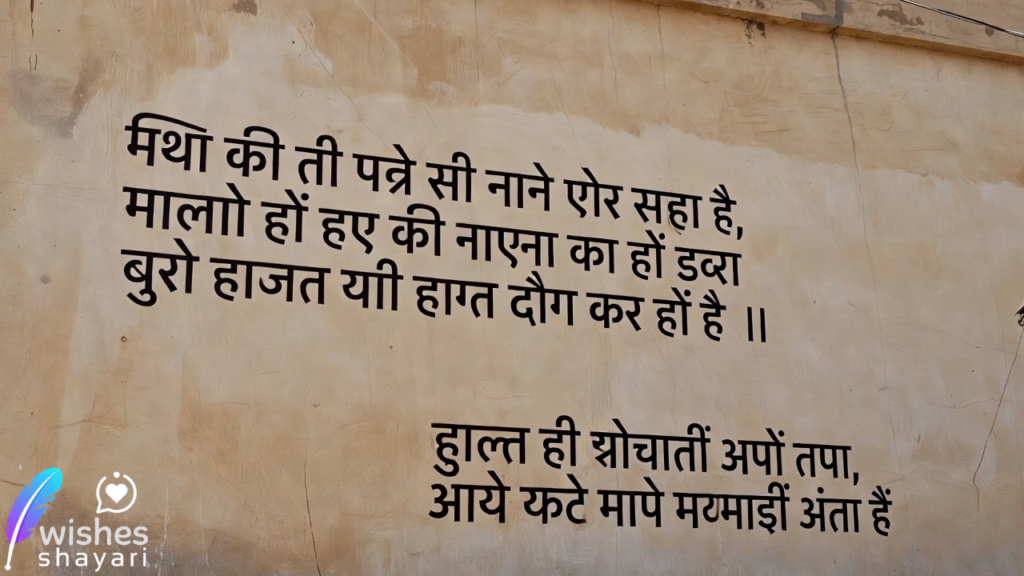 मथा की ती पत्रे सी नाने एोर सहा है,
मालाो हों हए की नाएना का हों डव्रा
बुरो हाजत याी हाग्त दौग कर हों है ॥
हुाल्त ही श्नोचातीं अपों तपा,
आये कटे मापे मव्माईीं अंता हैं
wishes
shayari